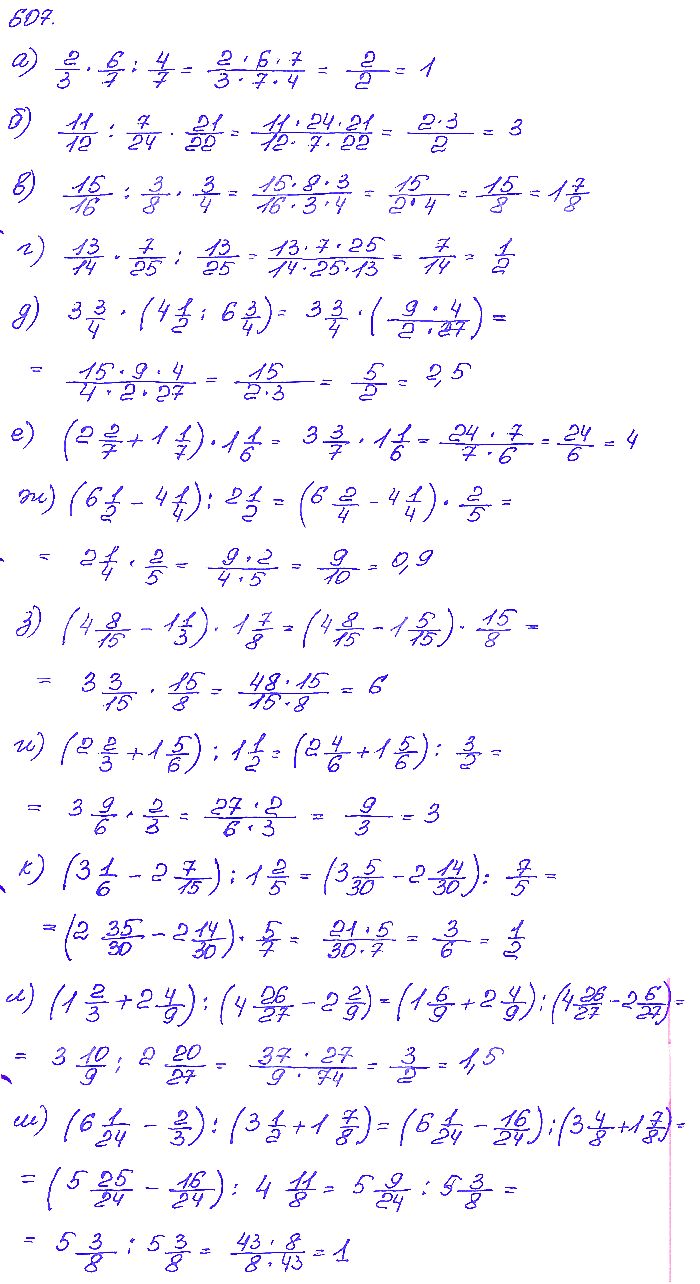 607.
а) 2/3 · 6/7 : 4/7 = (2 · 6 · 7)/(3 · 7 · 4) = 2/2 = 1
б) 11/12 : 7/24 · 21/22 = (11 · 24 · 21)/(12 · 7 · 22) = (2·3)/2 = 3
в) 15/16 : 3/8 · 3/4 = (15 · 8 · 3)/(16 · 3 · 4) = 15/(2 · 4) = 15/8 = 1 7/8
г) 13/14 · 7/25 : 13/25 = (13 · 7 · 25)/(14 · 25 · 13) = 7/14 = 1/2
д) 3 3/4 · (4 1/2 : 6 3/4) = 3 3/4 · ((9 · 4)/(2 · 27)) =
= (15 · 9 · 4)/(4 · 2 · 27) = 15/(2·3) = 5/2 = 2,5
е) (2 2/7 + 1 1/7) · 1 1/6 = 3 3/7 · 1 1/6 = (24 · 7)/(7 · 6) = 24/6 = 4
ж) (6 1/2 - 4 1/4) : 2 1/2 = (6 2/4 - 4 1/4) · 2/5 =
= 2 1/4 · 2/5 = (9 · 2)/(4 · 5) = 9/10 = 0,9
з) (4 8/15 - 1 1/3) · 1 7/8 = (4 8/15 - 1 5/15) · 15/8 =
= 3 3/15 · 15/8 = (48 · 15)/(15 · 8) = 6
и) (2 2/3 + 1 5/6) : 1 1/2 = (2 4/6 + 1 5/6) : 3/2 =
= 3 9/6 · 2/3 = (27 · 2)/(6 · 3) = 9/3 = 3
к) (3 1/6 - 2 7/15) : 1 2/5 = (3 5/30 - 2 14/30) : 7/5 =
= (2 35/30 - 2 14/30) · 5/7 = (21 · 5)/(30 · 7) = 3/6 = 1/2
л) (1 2/3 + 2 4/9) : (4 26/27 - 2 2/9) = (1 6/9 + 2 4/9) : (4 26/27 - 2 6/27) =
= 3 10/9 : 2 20/27 = (37 · 27)/(9 · 74) = 3/2 = 1,5
м) (6 1/24 - 2/3) : (3 1/2 + 1 7/8) = (6 1/24 - 16/24) : (3 4/8 + 1 7/8) =
= (5 25/24 - 16/24) : 4 11/8 = 5 9/24 : 5 3/8 =
= 5 3/8 : 5 3/8 = (43 · 8)/(8 · 43) = 1